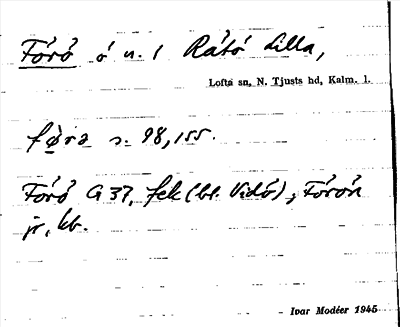 Fårö ö n. 1 Råtö Lilla,
Lofta sn, N. Tjusts hd, Kalm. l.
s. 98, 155.
G 37, fek (bl. Vidö),
jr, kb.
- Ivar Modéer 1945